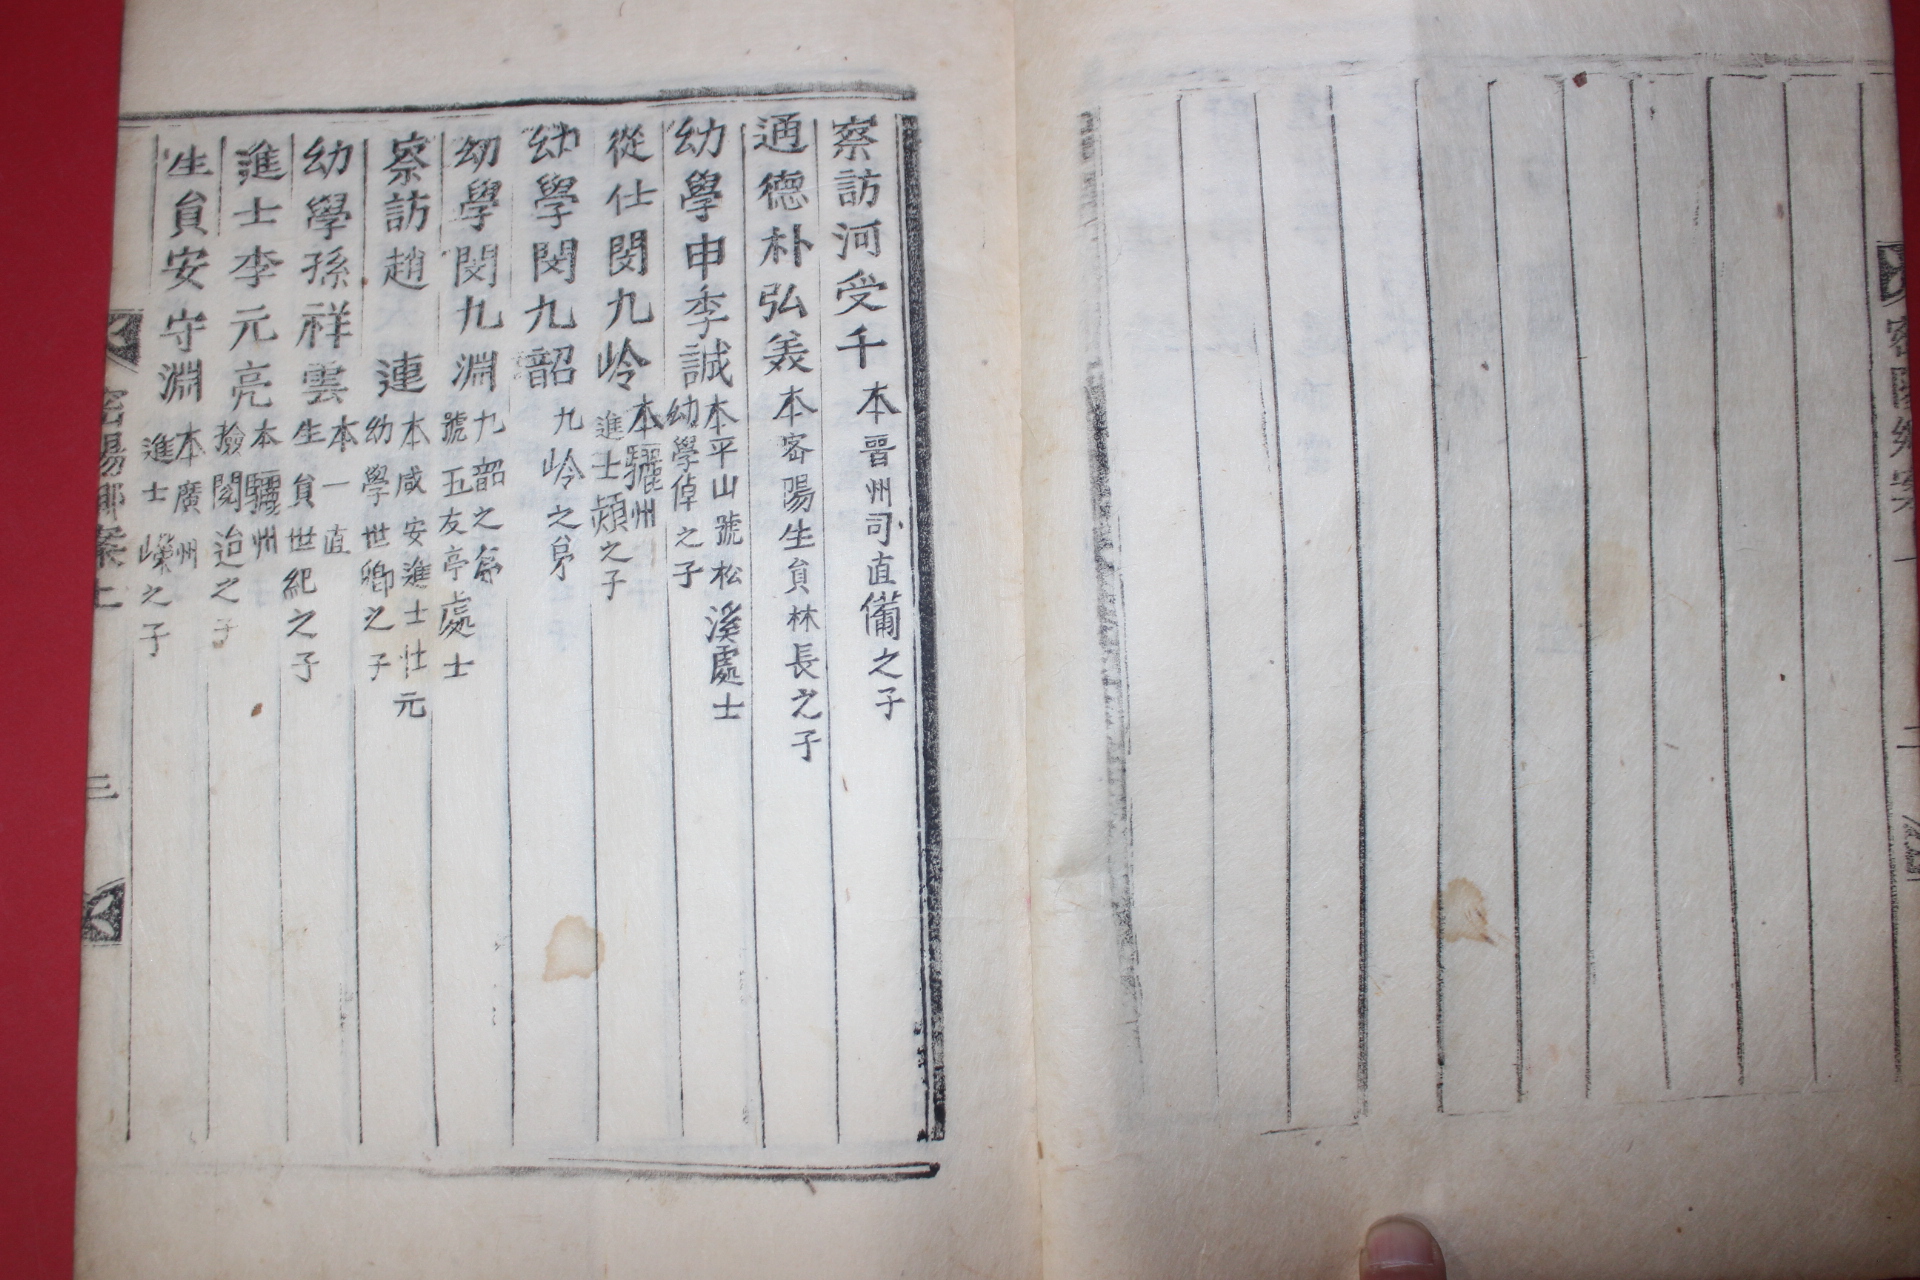 密陽鄕案
二
察訪河受千 本晉州司直備之子
通德朴弘義 本密陽生員林長之子
幼學申季誠 本平山號松溪處士
幼學倬之子
從仕閔九岭 本驪州
進士頮之子
幼學閔九韶 九岭之弟
幼學閔九淵 九韶之弟
號五友亭處士
察訪趙 連 本咸安進士仕元
幼學世卿之子
幼學孫祥雲 本一直
生員世紀之子
進士李元亮 本驪州
撿閱迨之子
生員安守淵 本廣州
進士嶸之子
密陽鄕案上
三